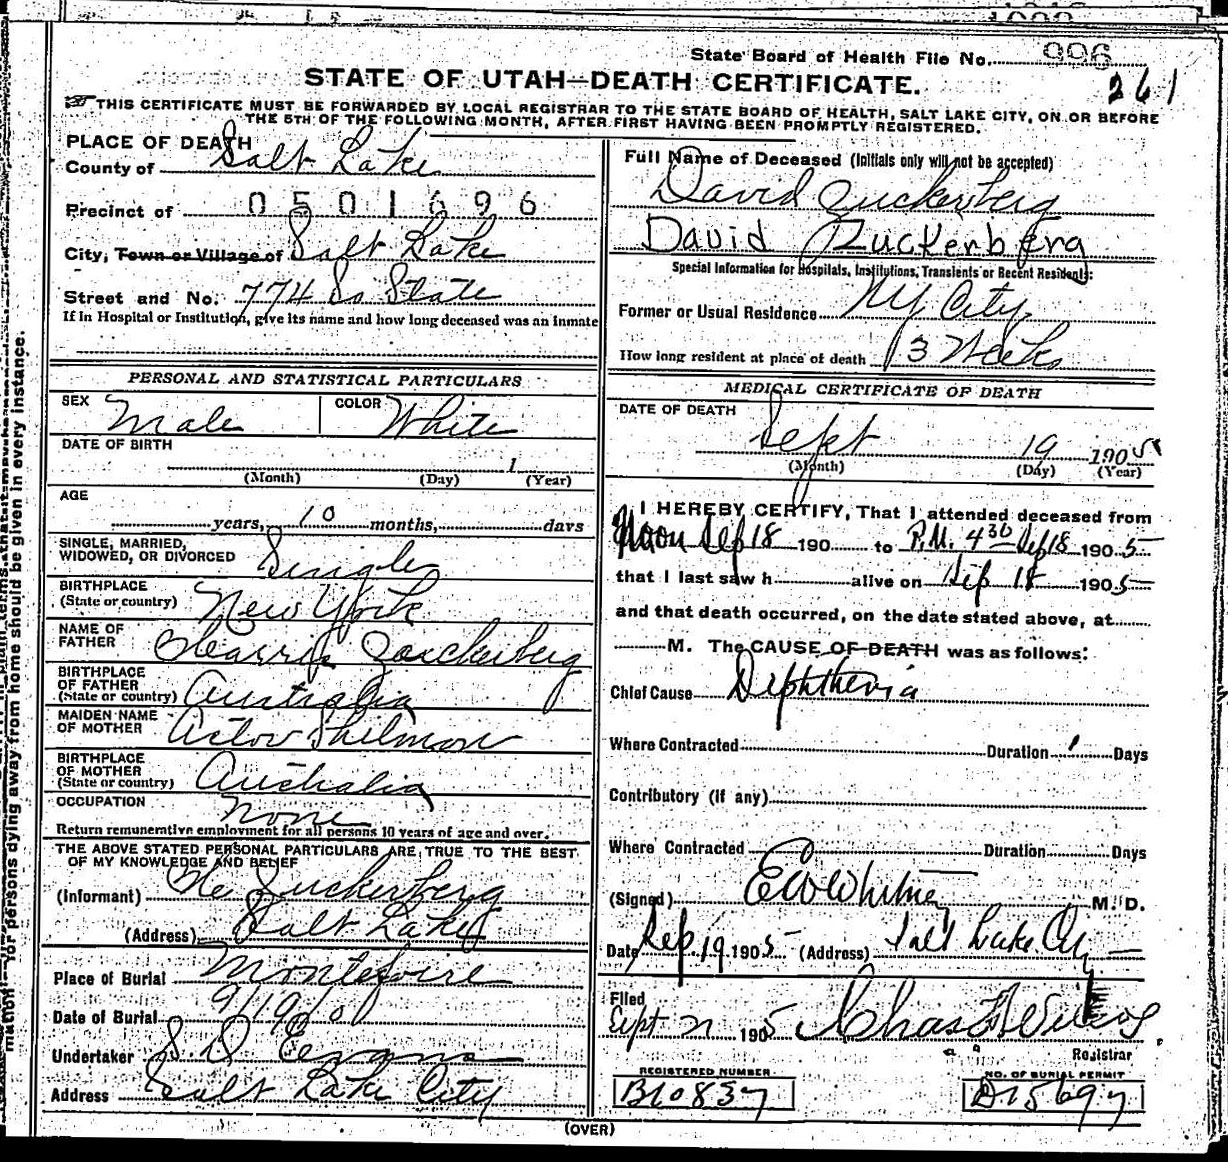 State Board of Health File No. 996
261
STATE OF UTAH—DEATH CERTIFICATE.
THIS CERTIFICATE MUST BE FORWARDED BY LOCAL REGISTRAR TO THE STATE BOARD OF HEALTH, SALT LAKE CITY, ON OR BEFORE
THE 5TH OF THE FOLLOWING MONTH, AFTER FIRST HAVING BEEN PROMPTLY REGISTERED.
PLACE OF DEATH
County of Salt Lake
Precinct of 0501696
City, Town or Village of Salt Lake
Street and No. 774 So State
If in Hospital or Institution, give its name and how long deceased was an inmate
PERSONAL AND STATISTICAL PARTICULARS
SEX Male COLOR White
DATE OF BIRTH
1
(Month) (Day) (Year)
AGE
years, 10 months, days
SINGLE, MARRIED,
WIDOWED, OR DIVORCED Single
BIRTHPLACE
(State or country) New York
NAME OF
FATHER Zuckerberg
BIRTHPLACE
OF FATHER
(State or country) Australia
MAIDEN NAME
OF MOTHER
BIRTHPLACE
OF MOTHER
(State or country) Australia
OCCUPATION None
Return remunerative employment for all persons 10 years of age and over.
THE ABOVE STATED PERSONAL PARTICULARS ARE TRUE TO THE BEST
OF MY KNOWLEDGE AND BELIEF
(Informant) Zuckerberg
(Address) Salt Lake
Place of Burial Montefoire
Date of Burial 9/19/0
Undertaker S. D Evans
Address Salt Lake City
Full Name of Deceased (Initials only will not be accepted)
David Zuckerberg
David Zuckerberg
Special Information for Hospitals, Institutions, Transients or Recent Residents:
Former or Usual Residence NY City
How long resident at place of death 3 Weeks
MEDICAL CERTIFICATE OF DEATH
DATE OF DEATH
Sept 19 1905
(Month) (Day) (Year)
I HEREBY CERTIFY, That I attended deceased from
Noon Sep 18 190 to P.M. 4 30 Sep 18 1905
that I last saw h alive on Sep 18 1905
and that death occurred, on the date stated above, at
M. The CAUSE OF DEATH was as follows:
Chief Cause Diphtheria
Where Contracted Duration 1 Days
Contributory (if any)
Where Contracted Duration Days
(Signed) E W Whitney M. D.
Date Sep 19 1905 (Address) Salt Lake City
Filed
Sept 21 1905 Chas
Registrar
REGISTERED NUMBER
B10837
NO. OF BURIAL PERMIT
D15697
(OVER)
mation for persons dying away from home should be given in every instance.